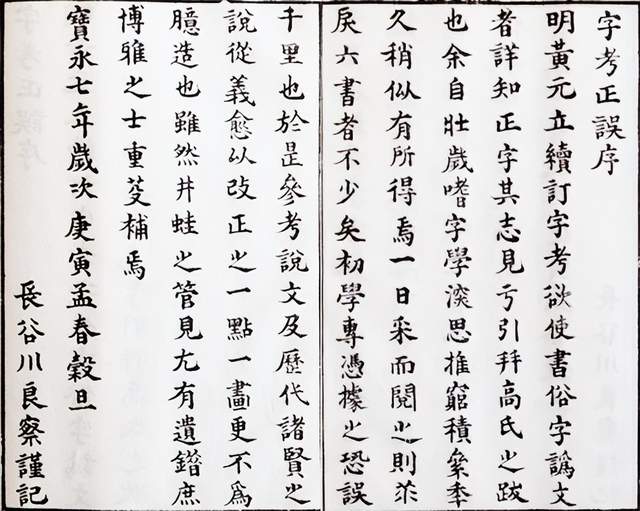 字考正誤序
明黃元立續訂字考欲使書俗字譌文
者詳知正字其志見亏引高氏之跋
也余自壯歲嗜字學深思推窮積絫秊
久稍似有所得焉一日采而閱之則乖
戾六書者不少矣初學專憑據之恐誤
千里也於是參考說文及歷代諸賢之
說從義愈以改正之一點一畫更不爲
臆造也雖然井蛙之管見尤有遺庶
博雅之士重芟補焉
寶永七年歲次庚寅孟春穀旦
長谷川良察謹記